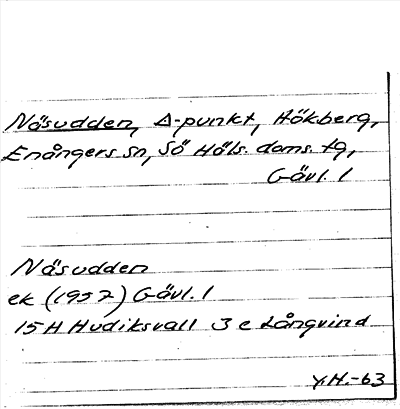 Näsudden, Δ-punkt, Hökberg,
Enångers sn, Sö Häls. doms. tg,
Gävl. l
Näsudden
ek (1957) Gävl. l
15H Hudiksvall 3 e Långvind
Y.H.-63